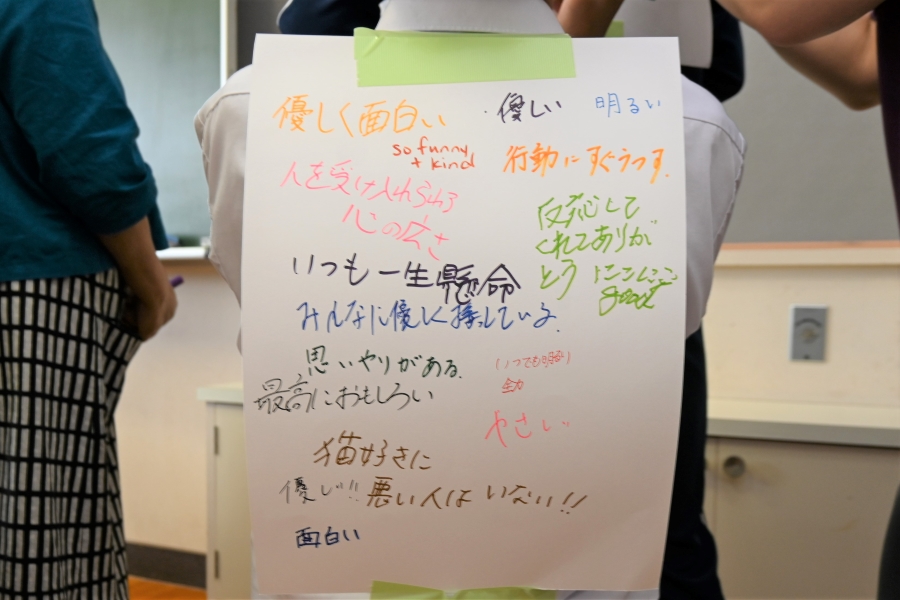 優しく面白い
優しい
明るい
so funny
+ kind
行動にすぐうつす.
人を受け入れられる
心の広さ
反応して
くれてありが
とう
good
いつも一生懸命
みんなに優しく接している.
思いやりがある.
(いつでも明)
全力
最高におもしろい
やさしい
猫好きに
悪い人はいない!!
優しい!!
面白い